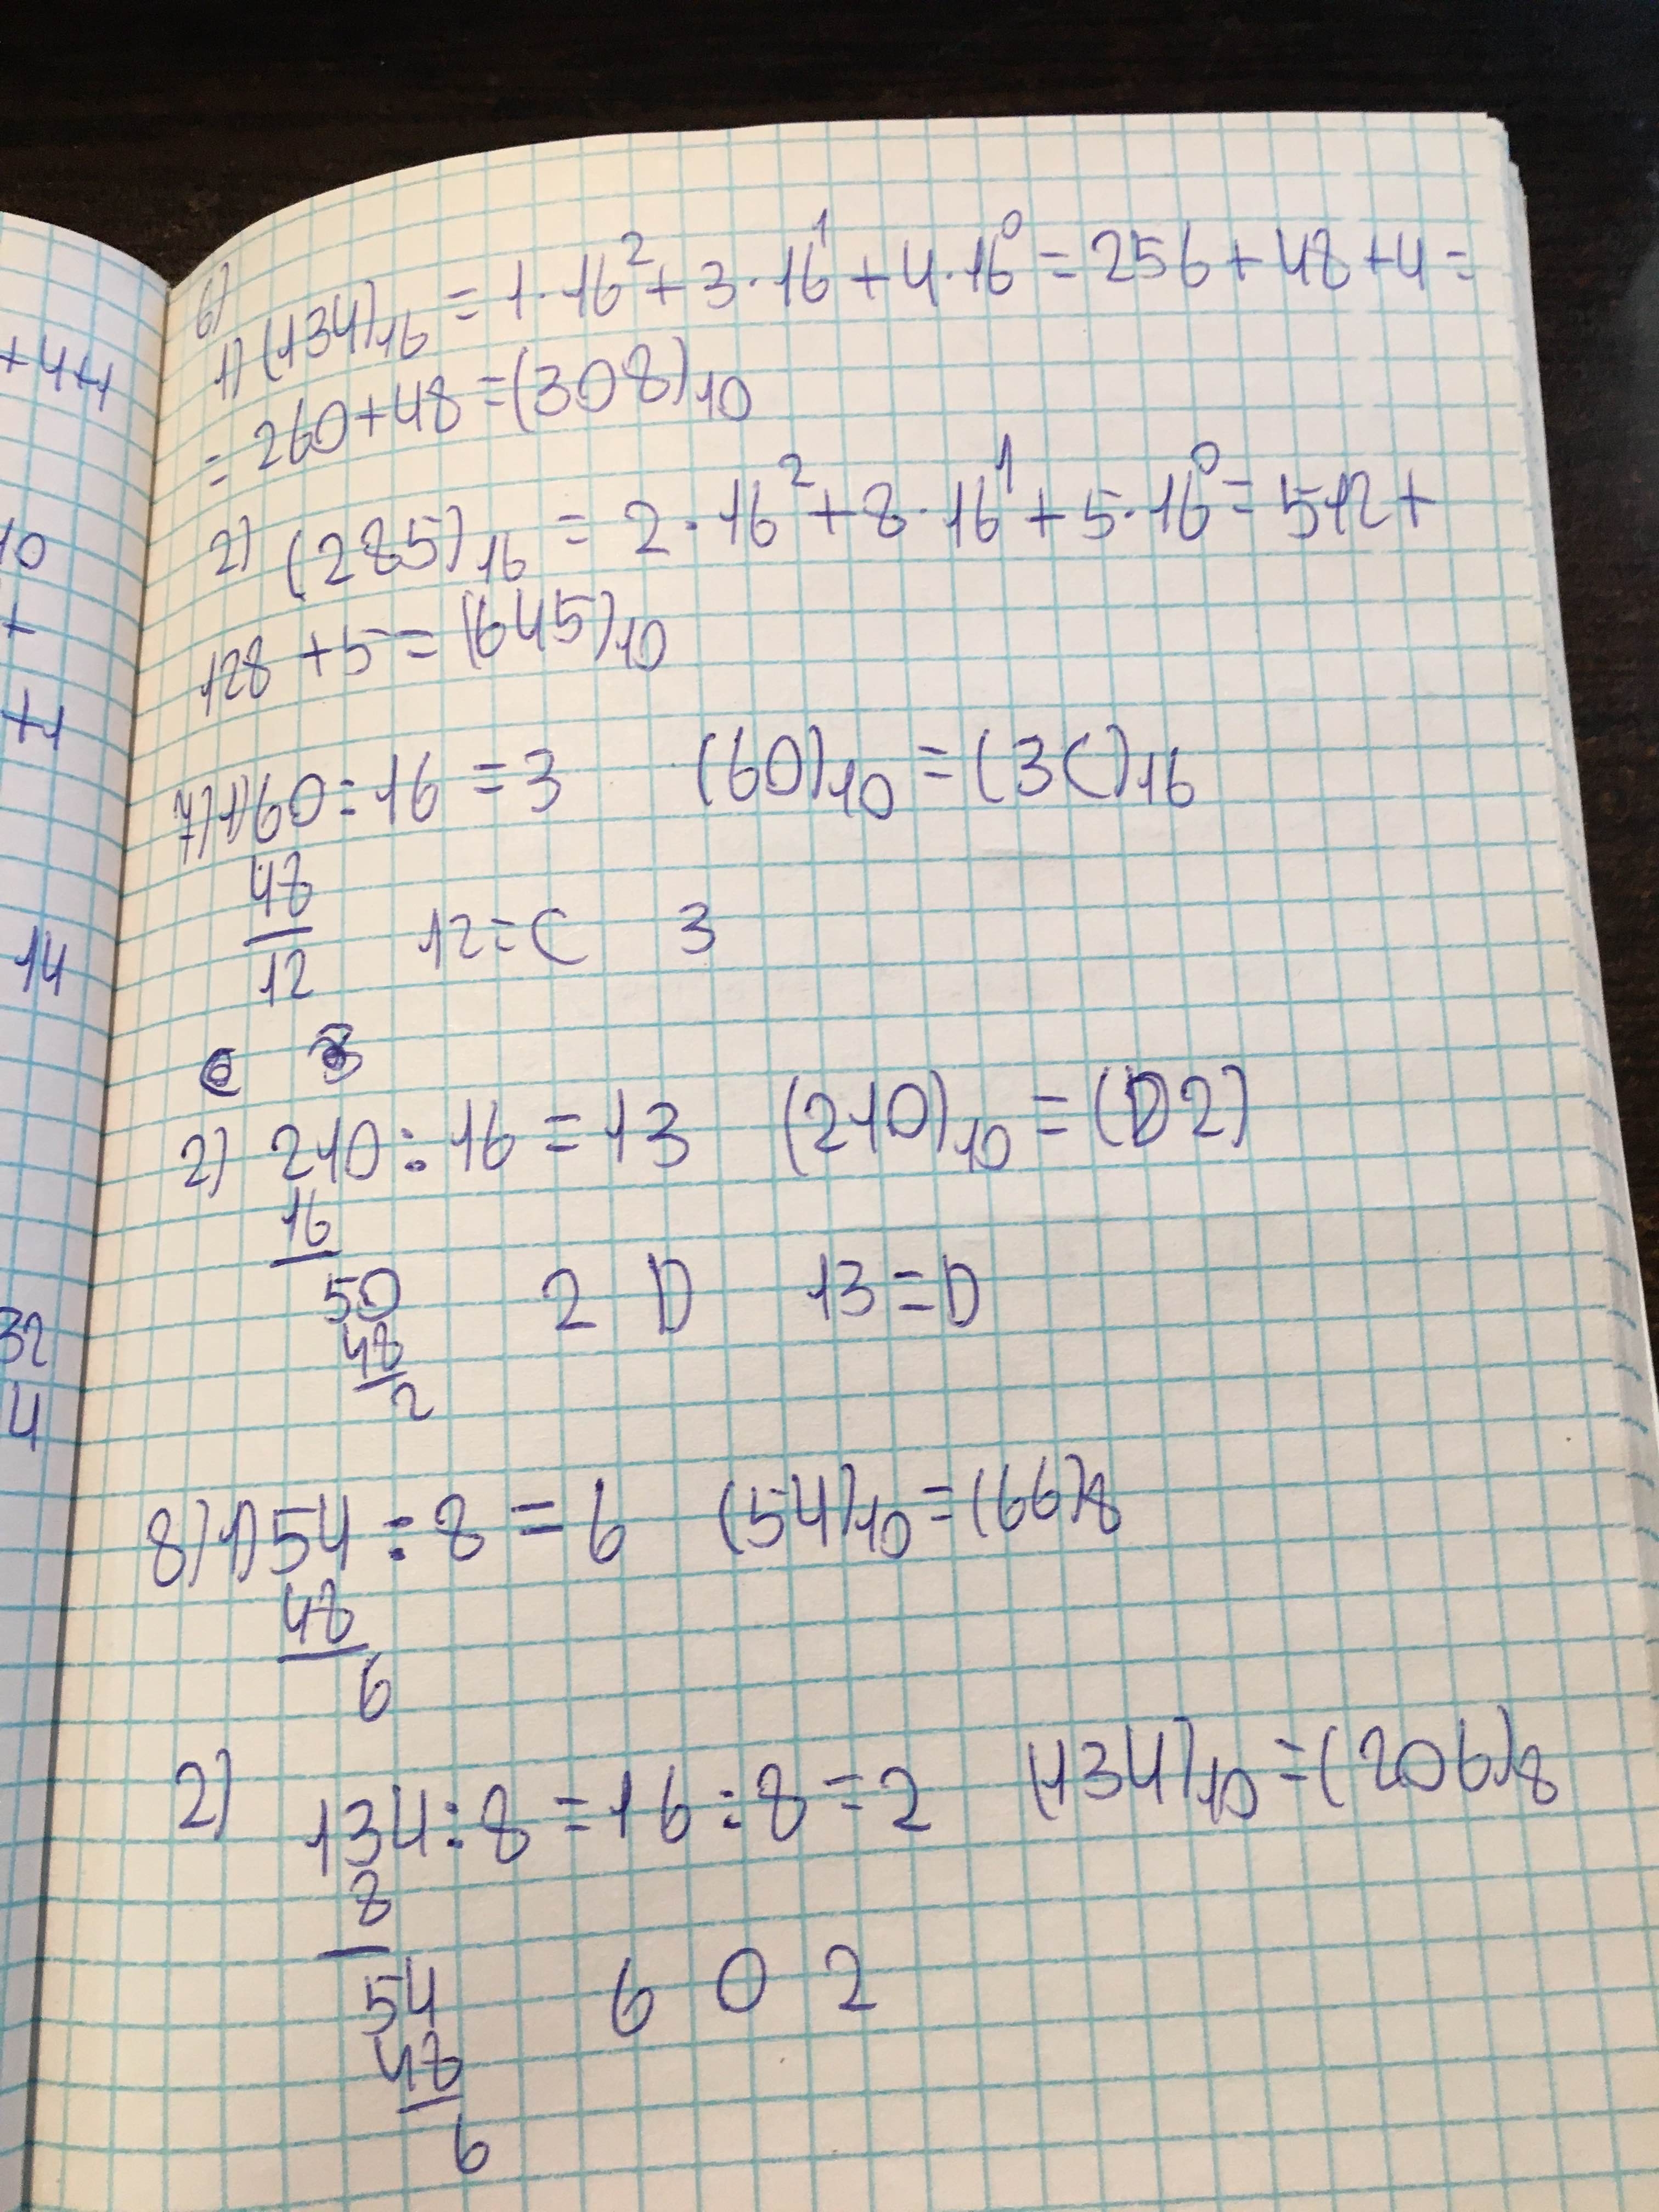 +4+1
10
+
+1
14
32
4
6)
1) (134)16 = 1·16² + 3·16¹ + 4·16⁰ = 256 + 48 + 4 =
= 260 + 48 = (308)10
2) (285)16 = 2·16² + 8·16¹ + 5·16⁰ = 512 +
128 + 5 = (645)10
7) 1) 60 : 16 = 3 (60)10 = (3C)16
48
12 12 = C 3
2) 210 : 16 = 13 (210)10 = (D2)
16
50 2 D 13 = D
48
2
8) 1) 54 : 8 = 6 (54)10 = (66)8
48
6
2) 134 : 8 = 16 : 8 = 2 (134)10 = (206)8
8
54 6 0 2
48
6